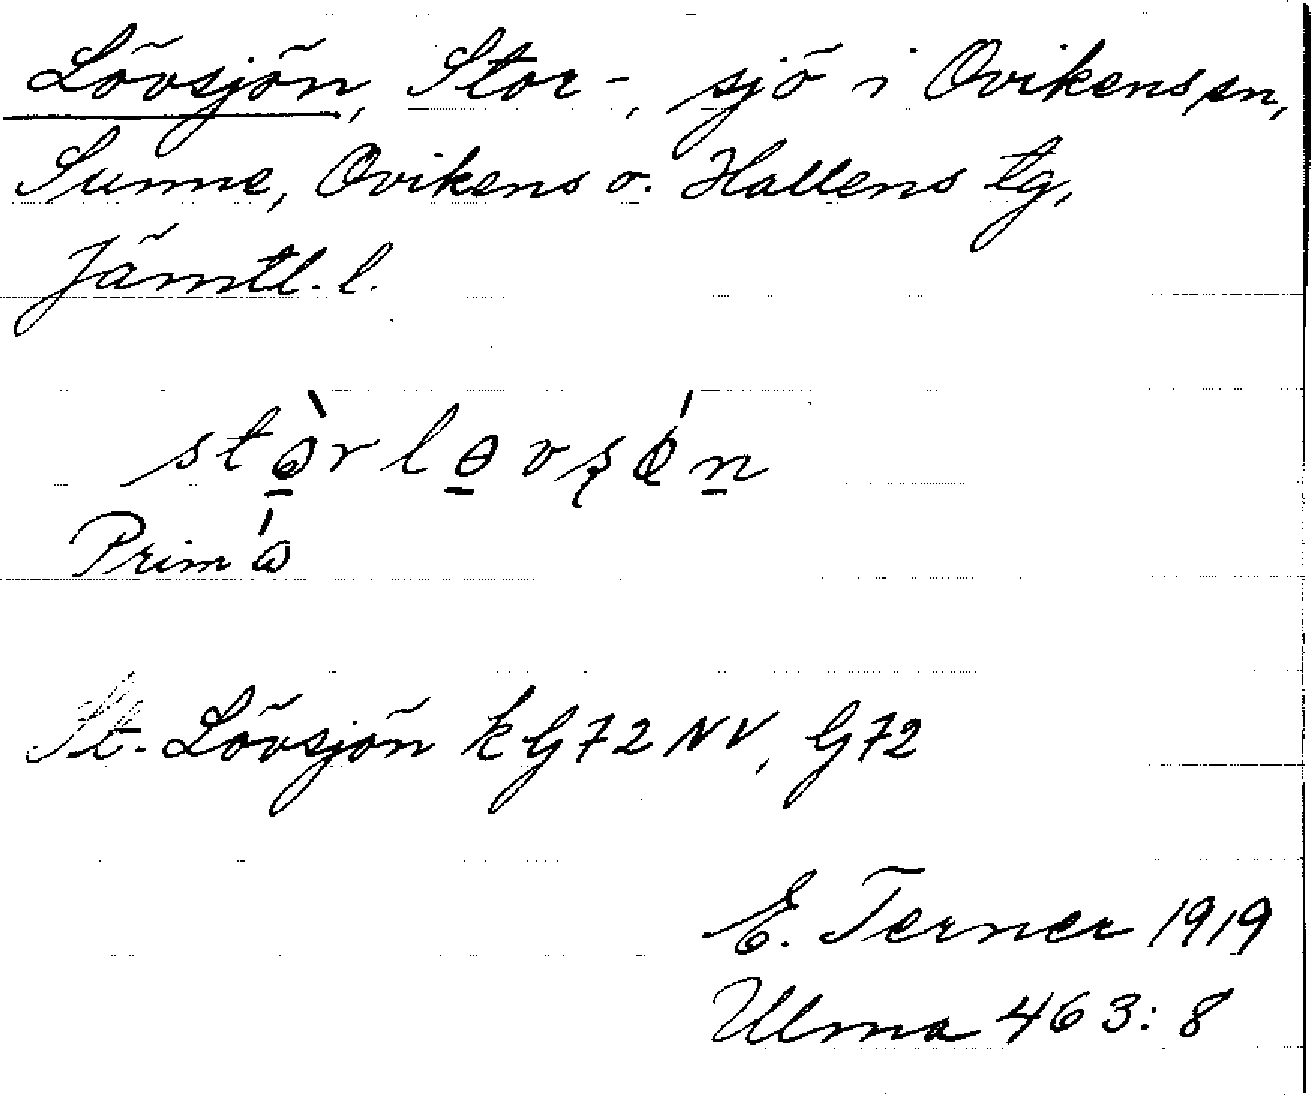 Lövsjön, Stor-, sjö i Ovikens sn,
Sunne, Ovikens o. Hallens tg,
Jämtl. l.
stɷ̀rlɵvʂǿn
Prim ɷ́
St. Lövsjön k G72 NV, G72
E. Terner 1919
Ulma 463:8